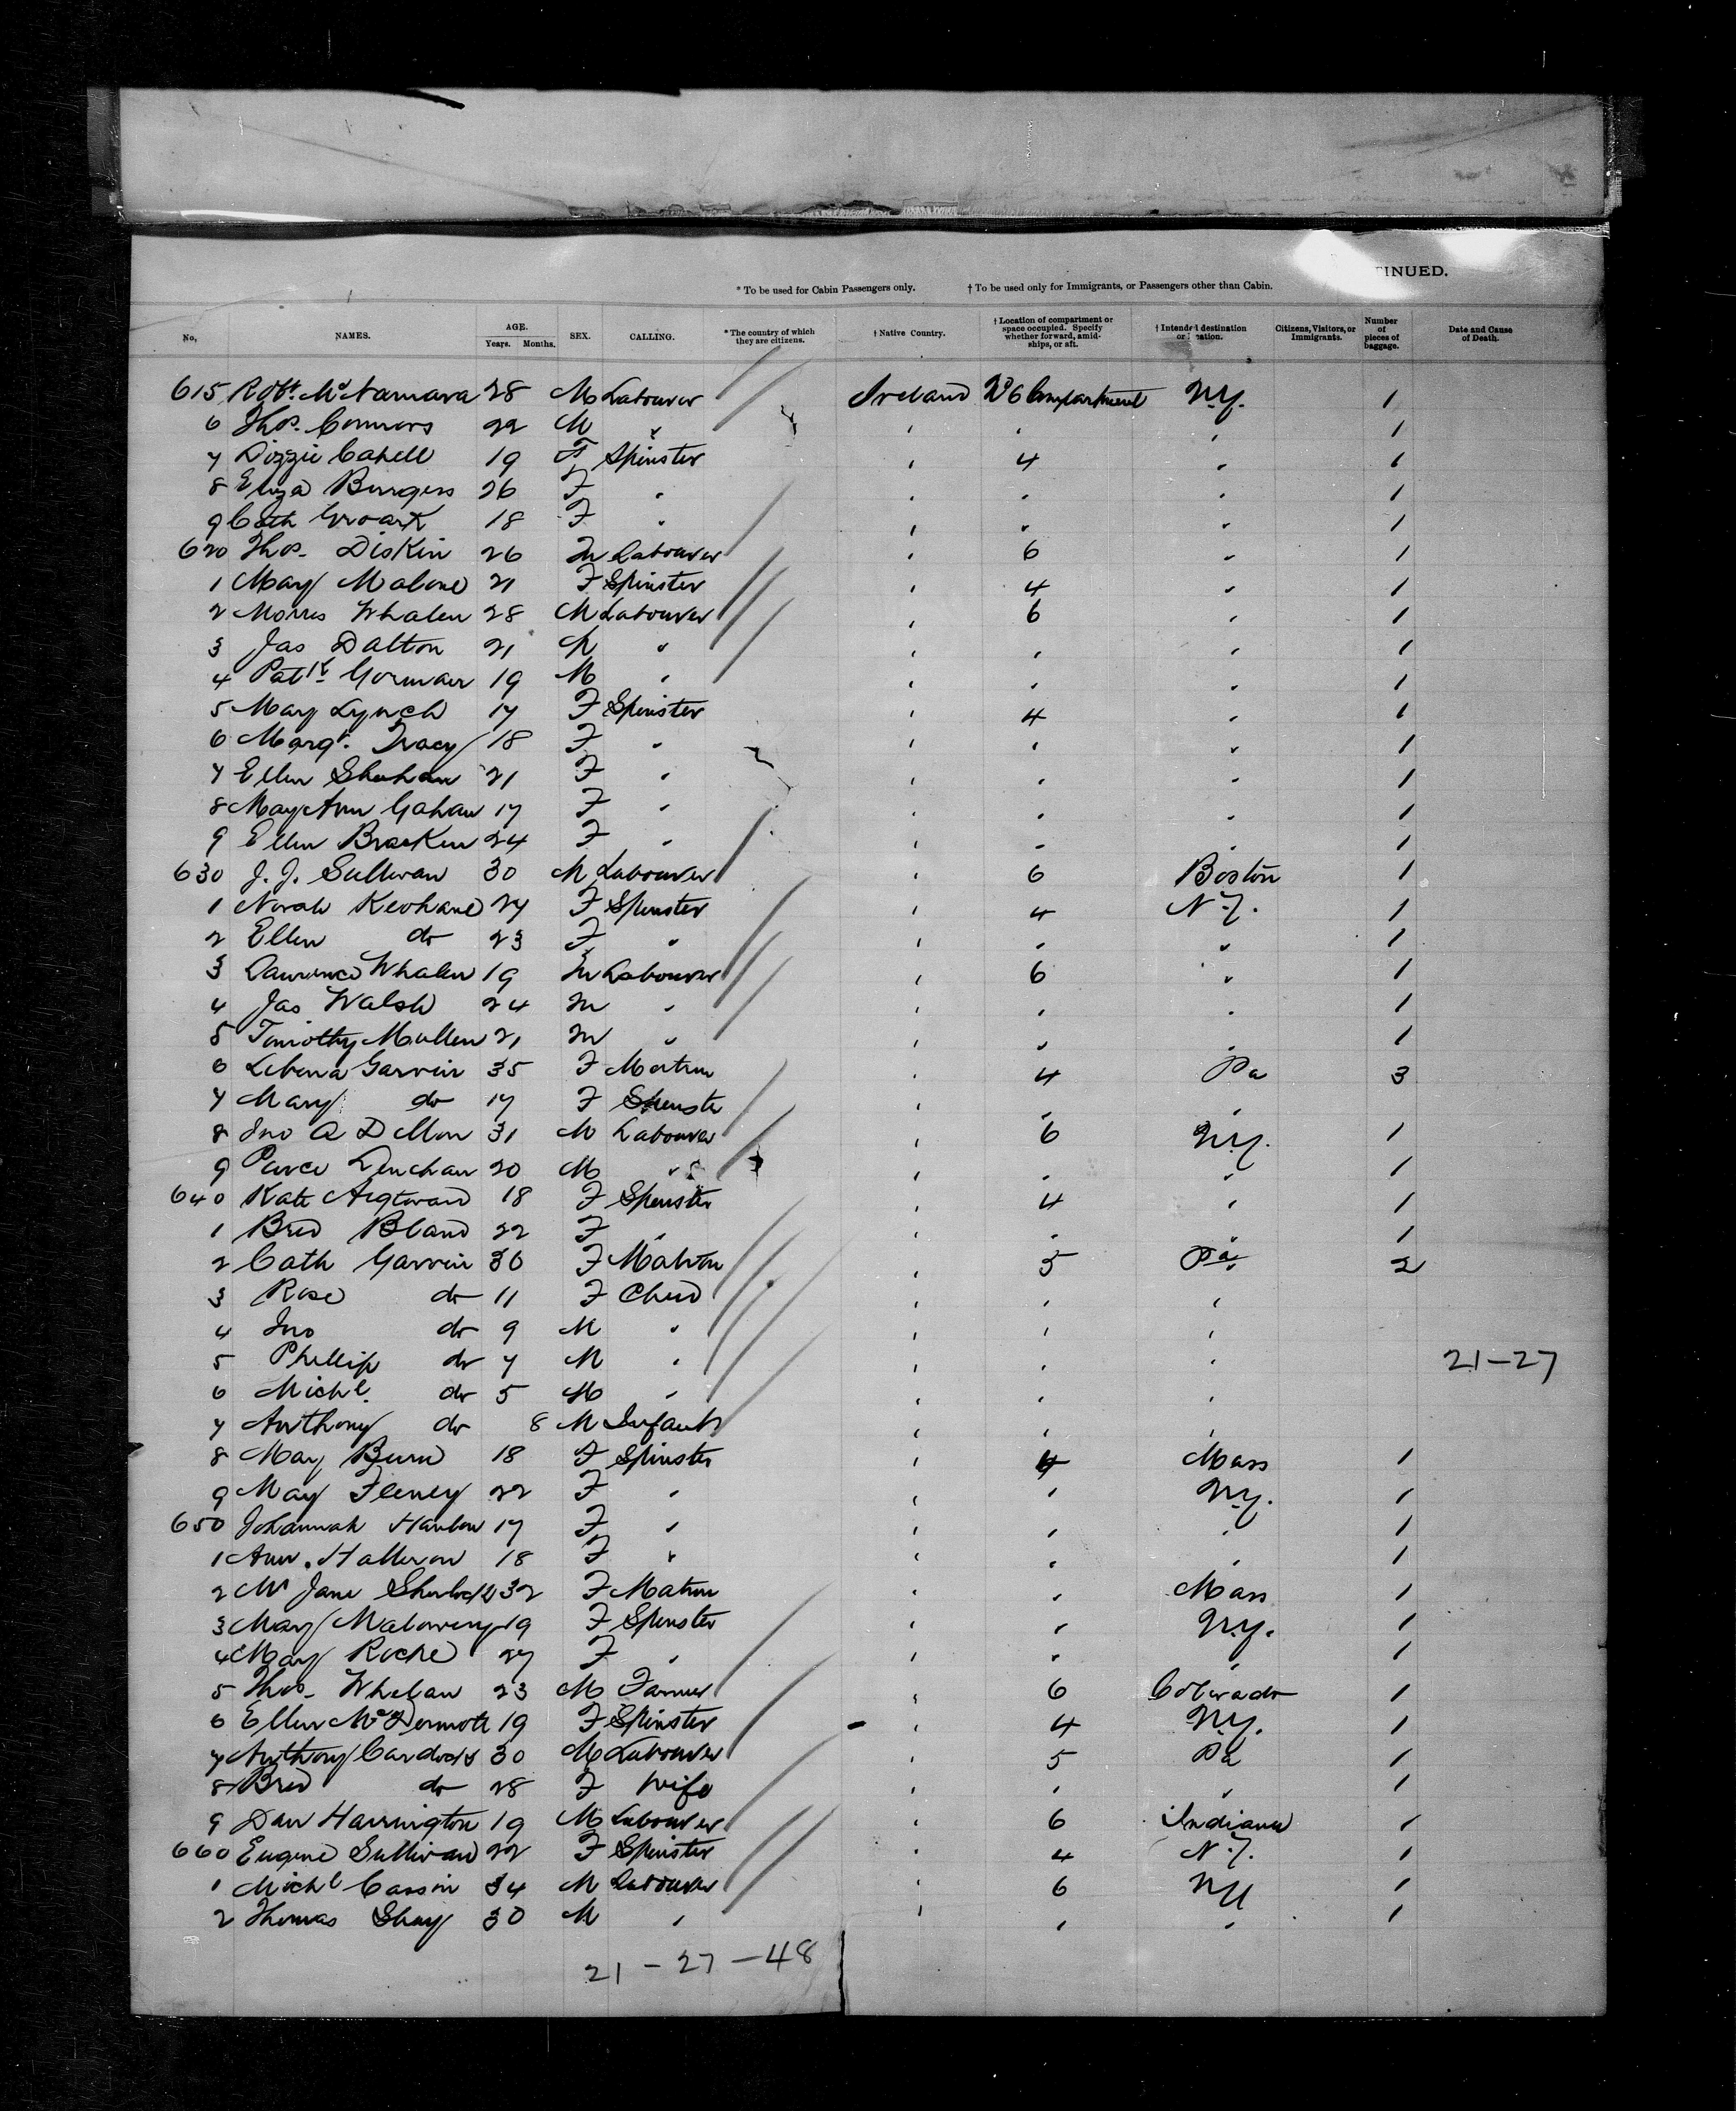 TINUED.
* To be used for Cabin Passengers only. † To be used only for Immigrants, or Passengers other than Cabin.
No. NAMES. AGE. Years. Months. SEX. CALLING. * The country of which they are citizens. † Native Country. † Location of compartment or space occupied. Specify whether forward, amid-ships, or aft. † Intended destination or location. Citizens, Visitors, or Immigrants. Number of pieces of baggage. Date and Cause of Death.
615 Robt. McNamara 28 M Labourer Ireland No 6 Compartment N.Y. 1
6 Thos. Connors 22 M " " " " 1
7 Lizzie Cahell 19 F Spinster " 4 " 1
8 Eliza Burgess 26 F " " " " 1
9 Cath Groark 18 F " " " " 1
620 Thos. Diskin 26 M Labourer " 6 " 1
1 Mary Malone 21 F Spinster " 4 " 1
2 Morris Whalen 28 M Labourer " 6 " 1
3 Jas Dalton 21 M " " " " 1
4 Patk. Gorman 19 M " " " " 1
5 Mary Lynch 17 F Spinster " 4 " 1
6 Margt. Tracy 18 F " " " " 1
7 Ellen Sheehan 21 F " " " " 1
8 Mary Ann Gahan 17 F " " " " 1
9 Ellen Bracken 24 F " " " " 1
630 J. J. Sullivan 30 M Labourer " 6 Boston 1
1 Norah Keohane 24 F Spinster " 4 N.Y. 1
2 Ellen do 23 F " " " " 1
3 Laurence Whalen 19 M Labourer " 6 " 1
4 Jas Walsh 24 M " " " " 1
5 Timothy Mullen 21 M " " " " 1
6 Garvin 35 F Matron " 4 Pa 3
7 Mary do 17 F Spinster " " "
8 Jno A Dillon 31 M Labourer " 6 N.Y. 1
9 Pierce Lenehan 20 M " " " " 1
640 Kate 18 F Spinster " 4 " 1
1 Brid Bland 22 F " " " " 1
2 Cath Garvin 30 F Matron " 5 Pa 2
3 Rose do 11 F Child " " "
4 Jno do 9 M " " " "
5 Phillip do 7 M " " " " 21-27
6 Michl. do 5 M " " " "
7 Anthony do 8 M Infant " " "
8 Mary Burn 18 F Spinster " 4 Mass 1
9 Mary Feeney 22 F " " " N.Y. 1
650 Johannah Hanlon 17 F " " " " 1
1 Ann. Halleron 18 F " " " " 1
2 Mrs Jane Sherlock 32 F Matron " " Mass 1
3 Mary Maloney 19 F Spinster " " N.Y. 1
4 Mary Roche 27 F " " " " 1
5 Thos. Whelan 23 M Farmer " 6 Colorado 1
6 Ellen McDermott 19 F Spinster " 4 N.Y. 1
7 Anthony 30 M Labourer " 5 Pa 1
8 Brid do 28 F Wife " " " 1
9 Dan Harrington 19 M Labourer " 6 Indiana 1
660 Eugene Sullivan 22 F Spinster " 4 N.Y. 1
1 Michl Cassin 34 M Labourer " 6 NY 1
2 Thomas Shay 30 M " " " " 1
21-27-48